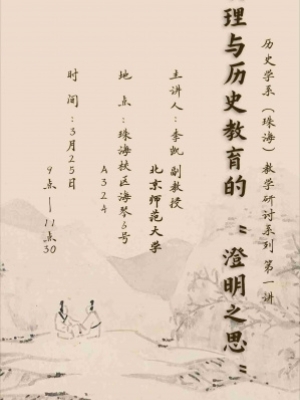 历史学系（珠海）教学研讨系列 第一讲
理与历史教育的“澄明之思”
主讲人：李凯 副教授
北京师范大学
地点：珠海校区海琴6号
A324
时间：3月25日
9点—11点30